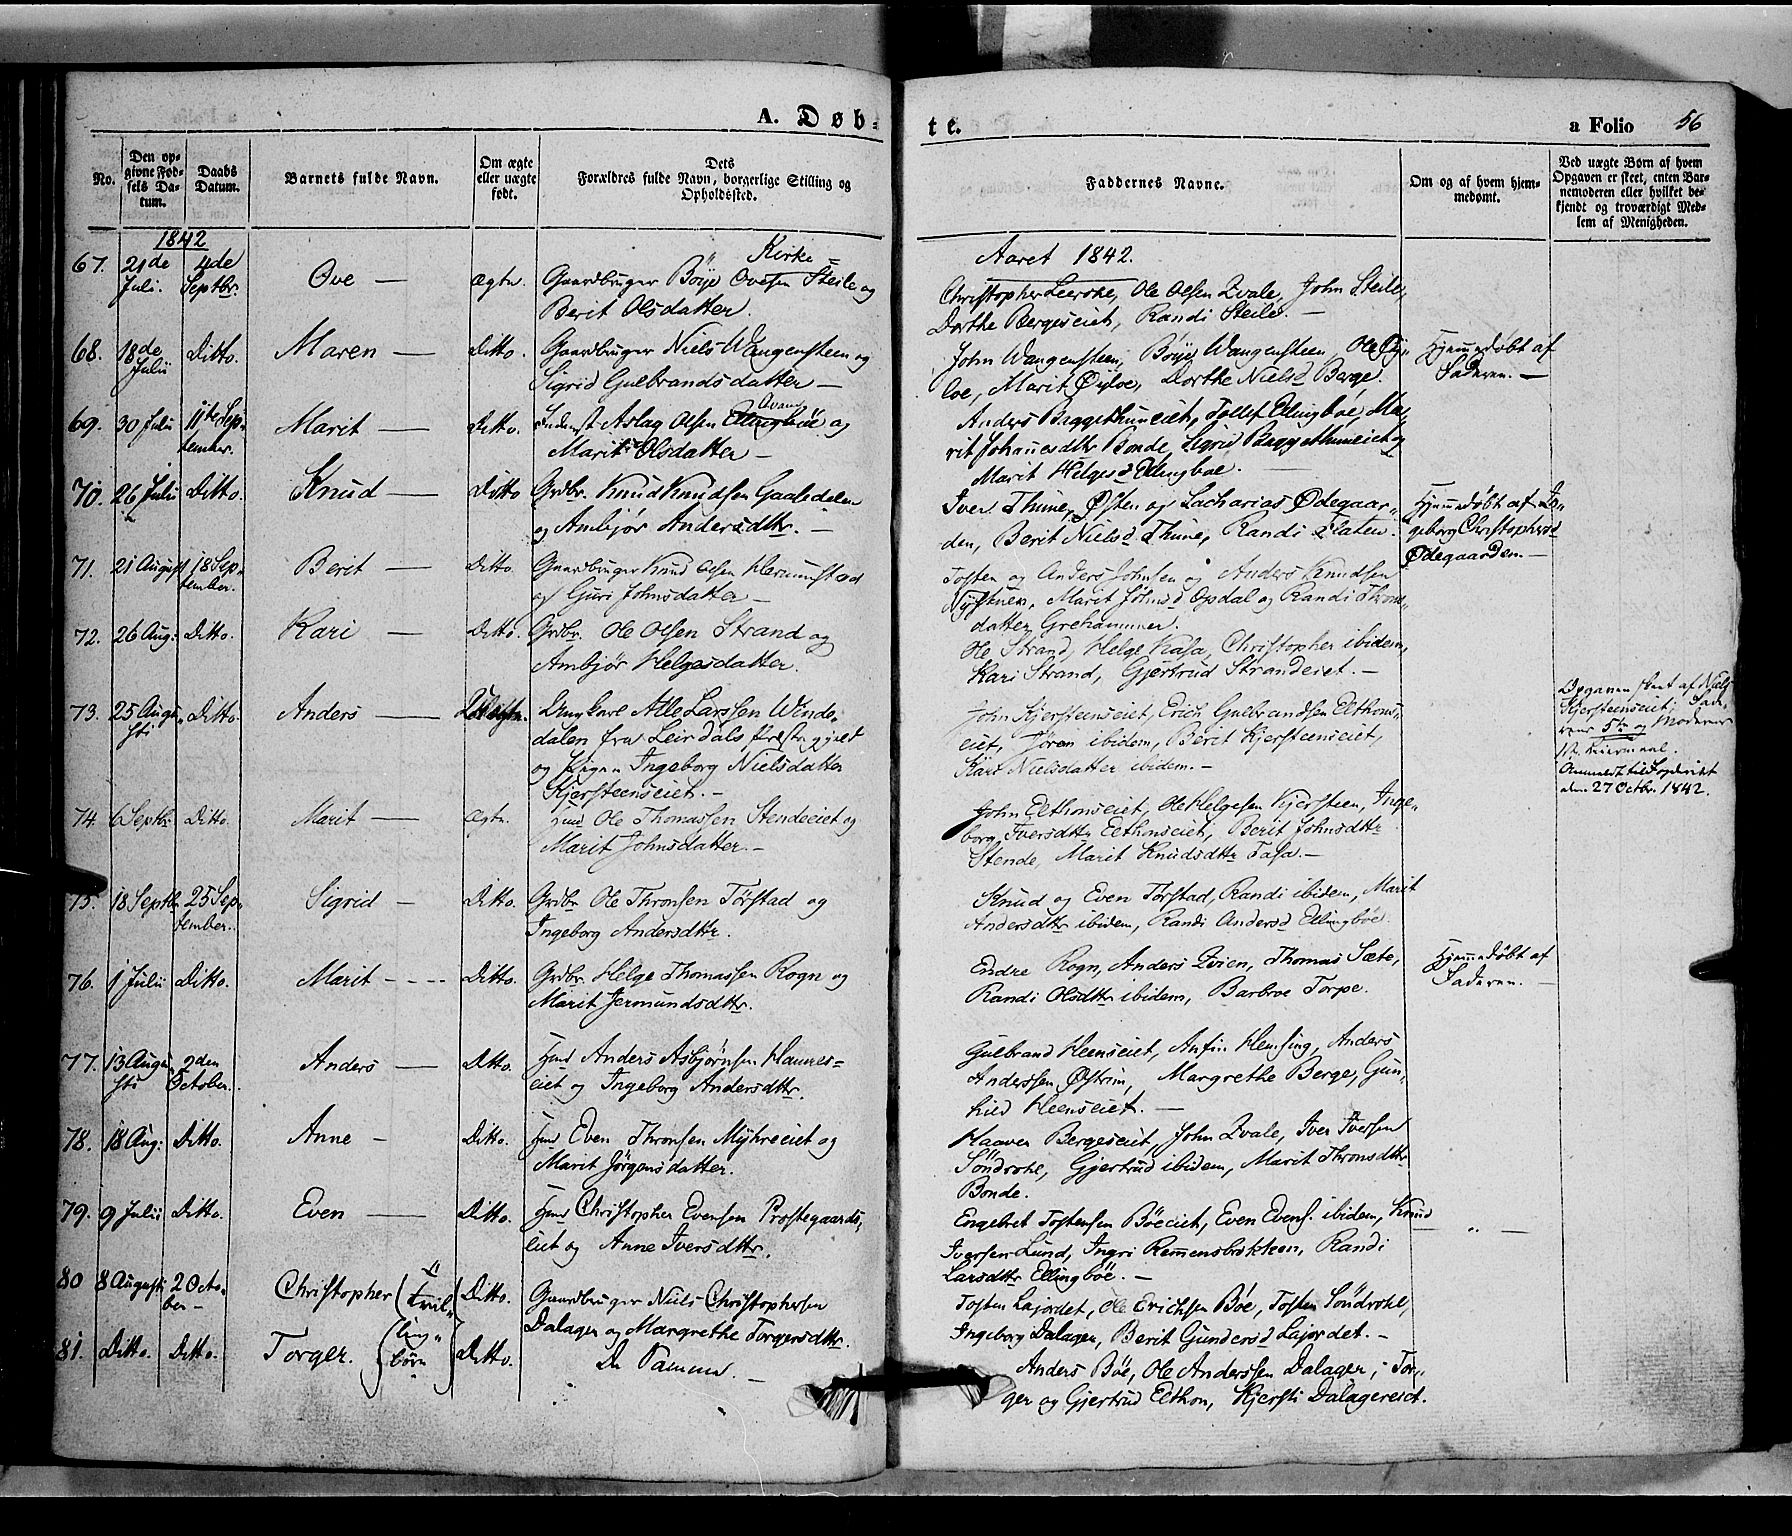 A. Døb-
te.
a Folio 56
No.
Den op-
givne Fød-
sels Da-
tum.
Daabs
Datum.
Barnets fulde Navn.
Om ægte
eller uægte
født.
Dets
Forældres fulde Navn, borgerlige Stilling og
Opholdssted.
Faddernes Navne.
Om og af hvem hjem-
medømt.
Ved uægte Børn af hvem
Opgaven er skeet, enten Bar-
nemoderen eller hvilket be-
kjendt og troværdigt Med-
lem af Menigheden.
1842
Aaret 1842.
67. 21de Juli. 4de Septbr. Ove — ægte.
Kirke-
Gaardbruger Böye Ovesen Steile og
Berit Olsdatter.
Christopher Leerhe, Ole Olsen Qvale, John Steile,
Dorthe Bergeseiet, Randi Steile. —
68. 18de Julii Ditto. Maren — Ditto.
Gaardbruger Niels Wangensteen og
Sigrid Gulbrandsdatter —
John Wangensteen, Böye Wangensteen, Ole Øy-
loe, Marit Øyloe, Dorthe Nielsd Berge.
Hjemmedøbt af
Faderen. —
69. 30 Julii 11te Sep-
tember. Marit — Ditto.
Inderst Aslag Olsen Ellingböe og
Marit Olsdatter —
Anders Baggethuneiet, Tollef Ellingböe, Ma-
rit Johannesdtr Bonde, Sigrid Baggethuneiet og
Marit Helgesd Ellingboe.
70. 26 Julii Ditto. Knud — Ditto
Grdbr. Knud Knudsen Gaalsdalen
og Ambjør Andersdttr. —
Iver Thune, Østen og Zacharias Ødegaar-
den, Berit Nielsd Thune, Randi Flaten.
Hjemmedøbt af In-
geborg Christophersd
Ødegaarden. —
71. 21 August 18 Sep-
tember. Berit — Ditto.
Gaardbruger Knud Olsen Hermunstad
og Guri Johnsdatter —
Tosten og Anders Johnsen og Anders Knudsen
Nystuen, Marit Johnsd Opdal og Randi Thron-
datter Grehammer.
72. 26 Aug: Ditto. Kari — Ditto.
Grdbr. Ole Olsen Strand og
Ambjør Helgesdatter.
Ole Strand, Helge Kasa, Christopher ibidem,
Kari Strand, Gjertrud Strandeiet. —
73. 25 Augu-
sti Ditto. Anders — Uægte.
Ungkarl Atle Larssen Winde-
dalen fra Leirdals Præstegjeld
og Pigen Ingeborg Nielsdatter
Kjersteenseiet. —
John Kjersteenseiet, Erich Gulbrandsen Elthons-
eiet, Jören ibidem, Berit Kjersteenseiet,
Kari Nielsdatter ibidem. —
Opgaven skeet af Niels
Kjersteenseiet; Fade-
rens 5te og Moderens
1ste Leiermaal.
Anmeldt til Fogderiet
den 27 Octbr. 1842.
74. 6 Septbr Ditto. Marit — ægte.
Hmd Ole Thomassen Stendeeiet og
Marit Johnsdatter. —
John Elthonseiet, Ole Helgesen Kjersteen, Inge-
borg Iversdttr Elthonseiet, Berit Johnsdttr
Stende, Marit Knudsdttr Fasa. —
75. 18 Septbr 25 Sep-
tember. Sigrid — Ditto.
Grdbr Ole Thronsen Törstad og
Ingeborg Andersdttr.
Knud og Even Torstad, Randi ibidem, Marit
Andersdttr ibidem, Randi Andersd Ellingböe.
76. 1 Julii Ditto. Marit - - - - Ditto.
Grdbr. Helge Thomassen Rogn og
Marit Jermundsdttr.
Endre Rogn, Anders Qvien, Thomas Sæte,
Randi Olsdttr ibidem, Barbroe Torpe.
Hjemmedøbt af
Faderen. —
77. 13 Augu-
sti 2den
October. Anders — Ditto.
Hmd Anders Asbjørnsen Haures-
eiet og Ingeborg Andersdttr.
Gulbrand Heenseiet, Anfin Hemsing, Anders
Anderssen Østrim, Margrethe Berge, Gun-
hild Heenseiet. —
78. 18 Aug: Ditto. Anne — Ditto.
Hmd Even Thronsen Myhreeiet og
Marit Jörgensdatter.
Haaver Bergeseiet, John Qvale, Iver Iversen
Söndrohl, Gjertrud ibidem, Marit Thronsdttr
Bonde.
79. 9 Julii Ditto. Even — Ditto.
Hmd Christopher Evensen Prostegaards-
eiet og Anne Iversdttr.
Engebret Tostensen Böeeiet, Even Evens. ibidem, Knud
Iversen Lund, Ingri Remmensbakken, Randi
Larsdttr Ellingböe. —
80 8 Augusti 2 Octo-
ber — Christopher (Tvil- Ditto.
Gaardbruger Niels Christophersen
Dalagen og Margrethe Torgersdttr.
Tosten Lajordet, Ole Erichsen Böe, Tosten Söndrohl,
Ingeborg Dalagen, Berit Gundersd Lajordet. —
81. Ditto. Ditto. Torger. (ling-
börn) Ditto.
De Samme. —
Anders Böe, Ole Anderssen Dalagen, Tor-
ger og Gjertrud Elthon, Kjersti Dalagereiet.